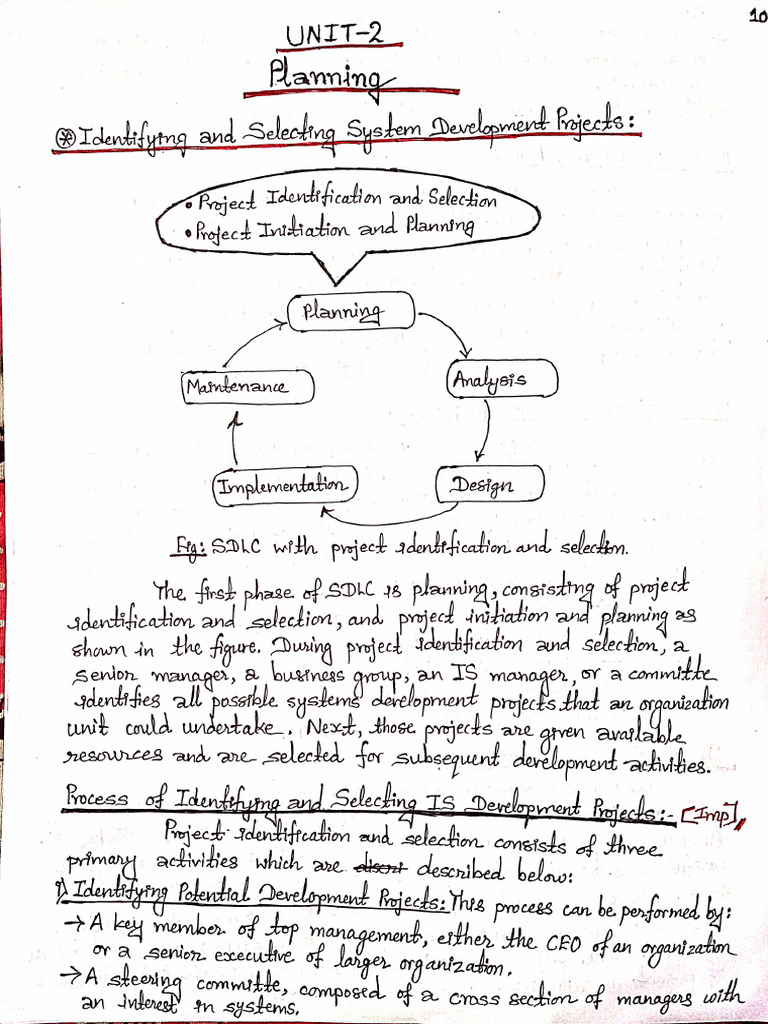 10
UNIT-2
Planning
⊛ Identifying and Selecting System Development Projects:
• Project Identification and Selection
• Project Initiation and Planning
Planning
Maintenance
Analysis
Implementation
Design
Fig: SDLC with project identification and selection.
The first phase of SDLC is planning, consisting of project
identification and selection, and project initiation and planning as
shown in the figure. During project identification and selection, a
senior manager, a business group, an IS manager, or a committe
identifies all possible systems development projects that an organization
unit could undertake. Next, those projects are given available
resources and are selected for subsequent development activities.
Process of Identifying and Selecting IS Development Projects:- [Imp]
Project identification and selection consists of three
primary activities which are discri described below:
1) Identifying Potential Development Projects: This process can be performed by:
→ A key member of top management, either the CEO of an organization
or a senior executive of larger organization.
→ A steering committe, composed of a cross section of managers with
an interest in systems.